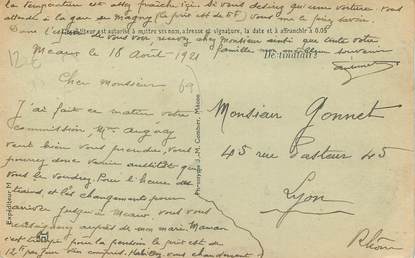 la température est assez fraîche (ici Si vous désirez qu'une voiture vous
attende à la gare au Magny (le prix est de 8F) vous me le ferez savoir.
Dans l'est
L'Expéditeur est autorisé à mettre son nom, adresse et signature, la date et à affranchir à 0.05
de vous voir recevez cher Monsieur ainsi que toute votre
famille mon meilleur souvenir
Meaux, le 18 Août 1921
Destinataire
12 €
Cher Monsieur
69
J'ai fait ce matin votre
commission, Mme
veut bien vous prendre, vous
pourrez donc venir aussitôt que
vous le voudrez. Pour l'heure des
trains et les changements pour
arriver jusqu'à Meaux, vous vous
renseignerez auprès de mon mari. Maman
s'est trompée pour la pension le prix est de
12F par jour vin compris. Habillez-vous chaudement
Phototypie J.-M. Combier, Mâcon
Expéditeur M
Monsieur Gonnet
45 rue Pasteur 45
Lyon
Rhône